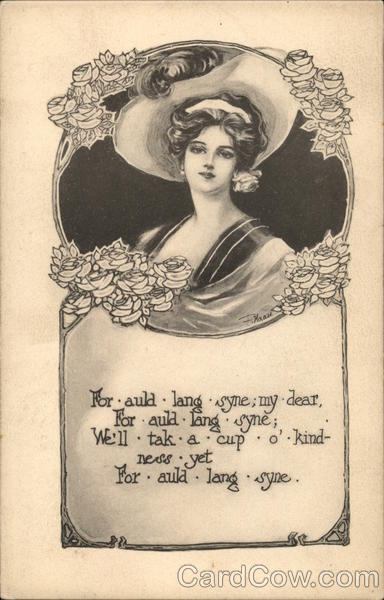 For · auld · lang · syne; my · dear,
For · auld · lang · syne;
We'll · tak · a · cup · o' · kind-
ness · yet
For · auld · lang · syne.
CardCow.com